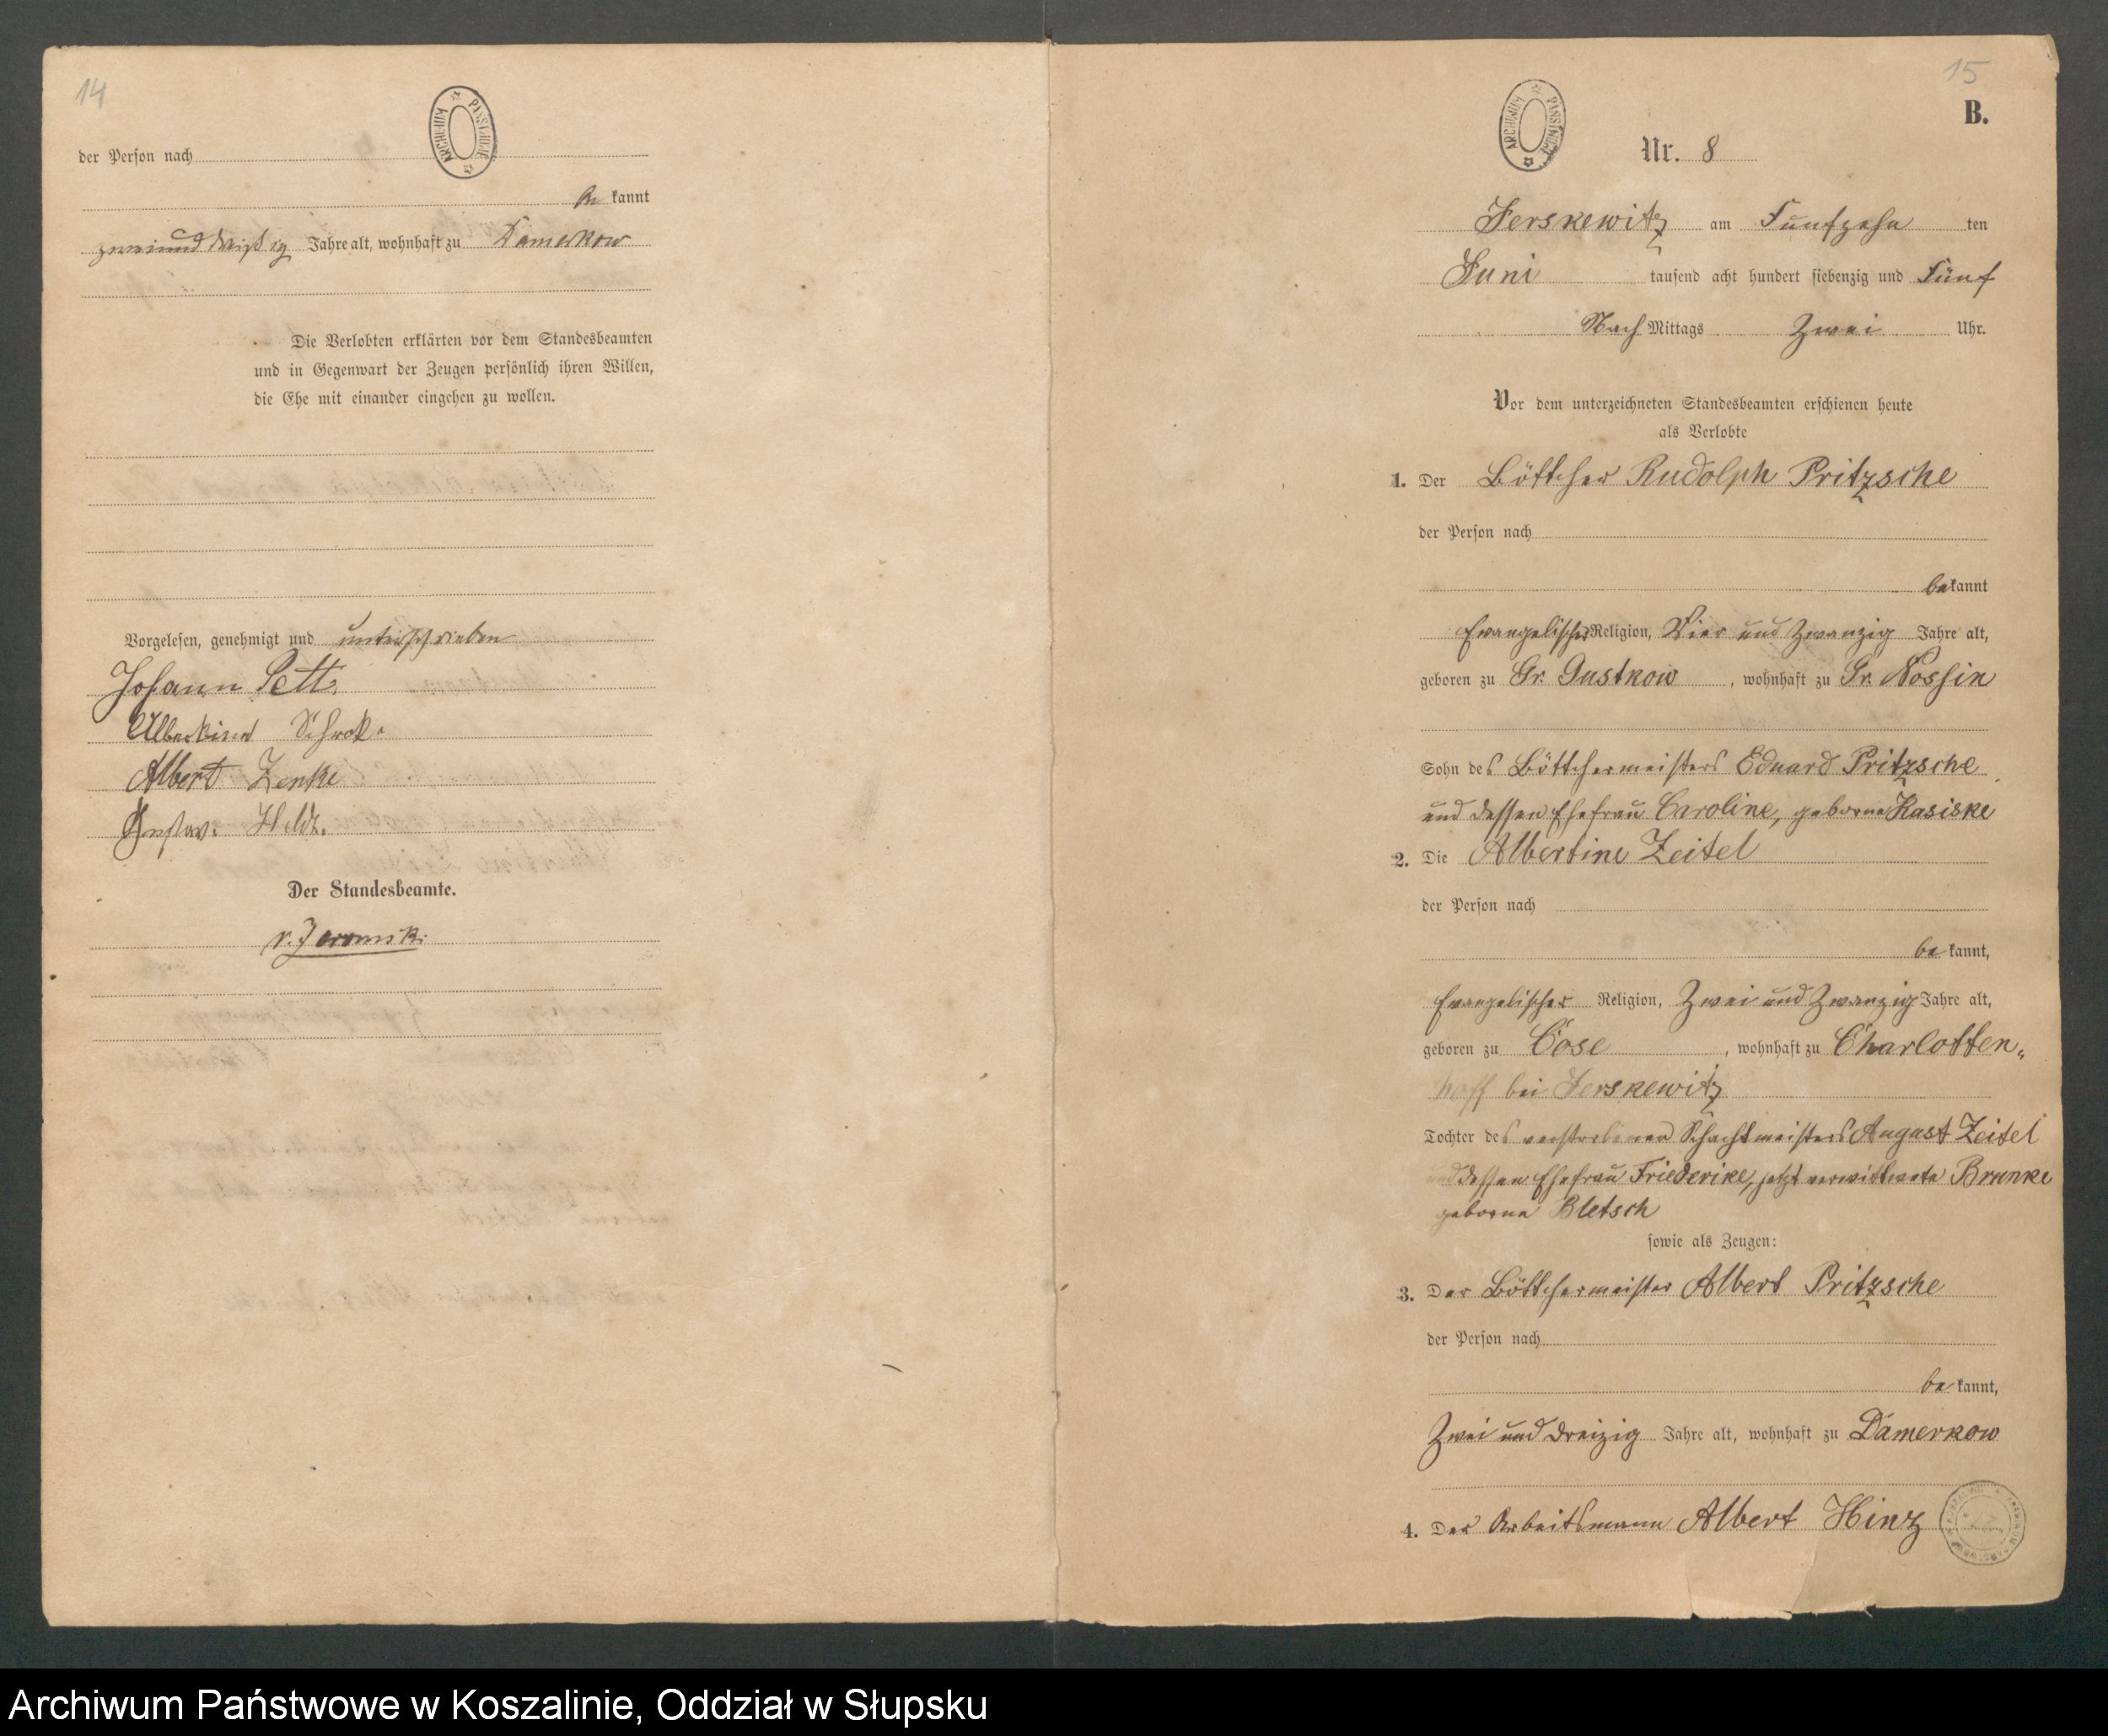 14
ARCHIWUM PAŃSTWOWE
der Person nach
be kannt
zweiunddreißig Jahre alt, wohnhaft zu Damerkow
Die Verlobten erklärten vor dem Standesbeamten
und in Gegenwart der Zeugen persönlich ihren Willen,
die Ehe mit einander eingehen zu wollen.
Vorgelesen, genehmigt und unterschrieben
Johann Pett
Albert Zenke
Gustav
Der Standesbeamte.
15
B.
ARCHIWUM PAŃSTWOWE
Nr. 8
Jerskewitz am Fünfzehn ten
Juni tausend acht hundert siebenzig und Fünf
Nach Mittags Zwei Uhr.
Vor dem unterzeichneten Standesbeamten erschienen heute
als Verlobte
1. Der Böttcher Rudolph Pritzsche
der Person nach
bekannt
Evangelischer Religion, Vier und Zwanzig Jahre alt,
geboren zu Gr. Gustkow, wohnhaft zu Gr. Nossin
Sohn des Böttchermeisters Eduard Pritzsche
und dessen Ehefrau Caroline, geborne Kasiske
2. Die Albertine Zeitel
der Person nach
be kannt,
Evangelischer Religion, Zwei und Zwanzig Jahre alt,
geboren zu Cose, wohnhaft zu Charlotten„
hoff bei Jerskewitz
Tochter des verstorbenen Schachtmeisters August Zeitel
und dessen Ehefrau Friederike, jetzt verwittwete Brunke
geborne Bletsch
sowie als Zeugen:
3. Der Böttchermeister Albert Pritzsche
der Person nach
be kannt,
Zwei und Dreizig Jahre alt, wohnhaft zu Damerkow
4. Der Arbeitsmann Albert Hinz
Archiwum Państwowe w Koszalinie, Oddział w Słupsku